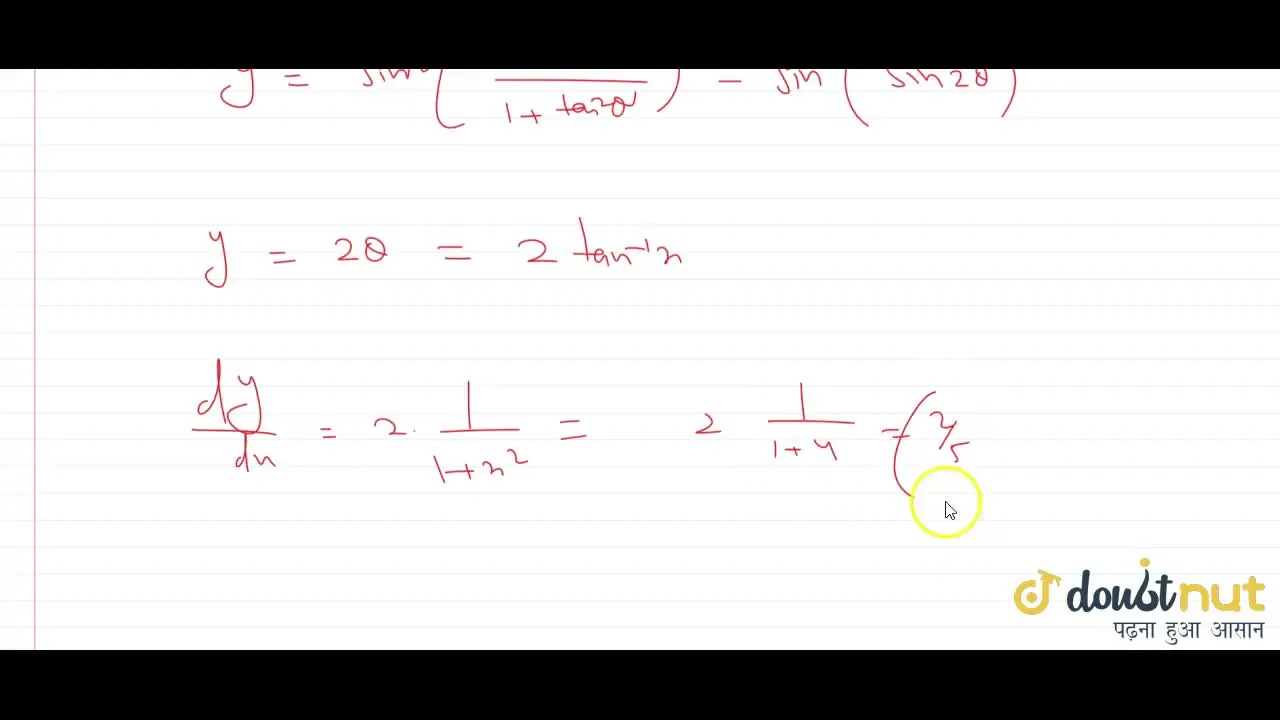 y = sin ( / 1 + tan2θ ) - sin ( sin2θ )
y = 2θ = 2 tan⁻¹x
dy/dx = 2 . 1/(1+x²) = 2 1/(1+4) = (2/5
doubtnut
पढ़ना हुआ आसान